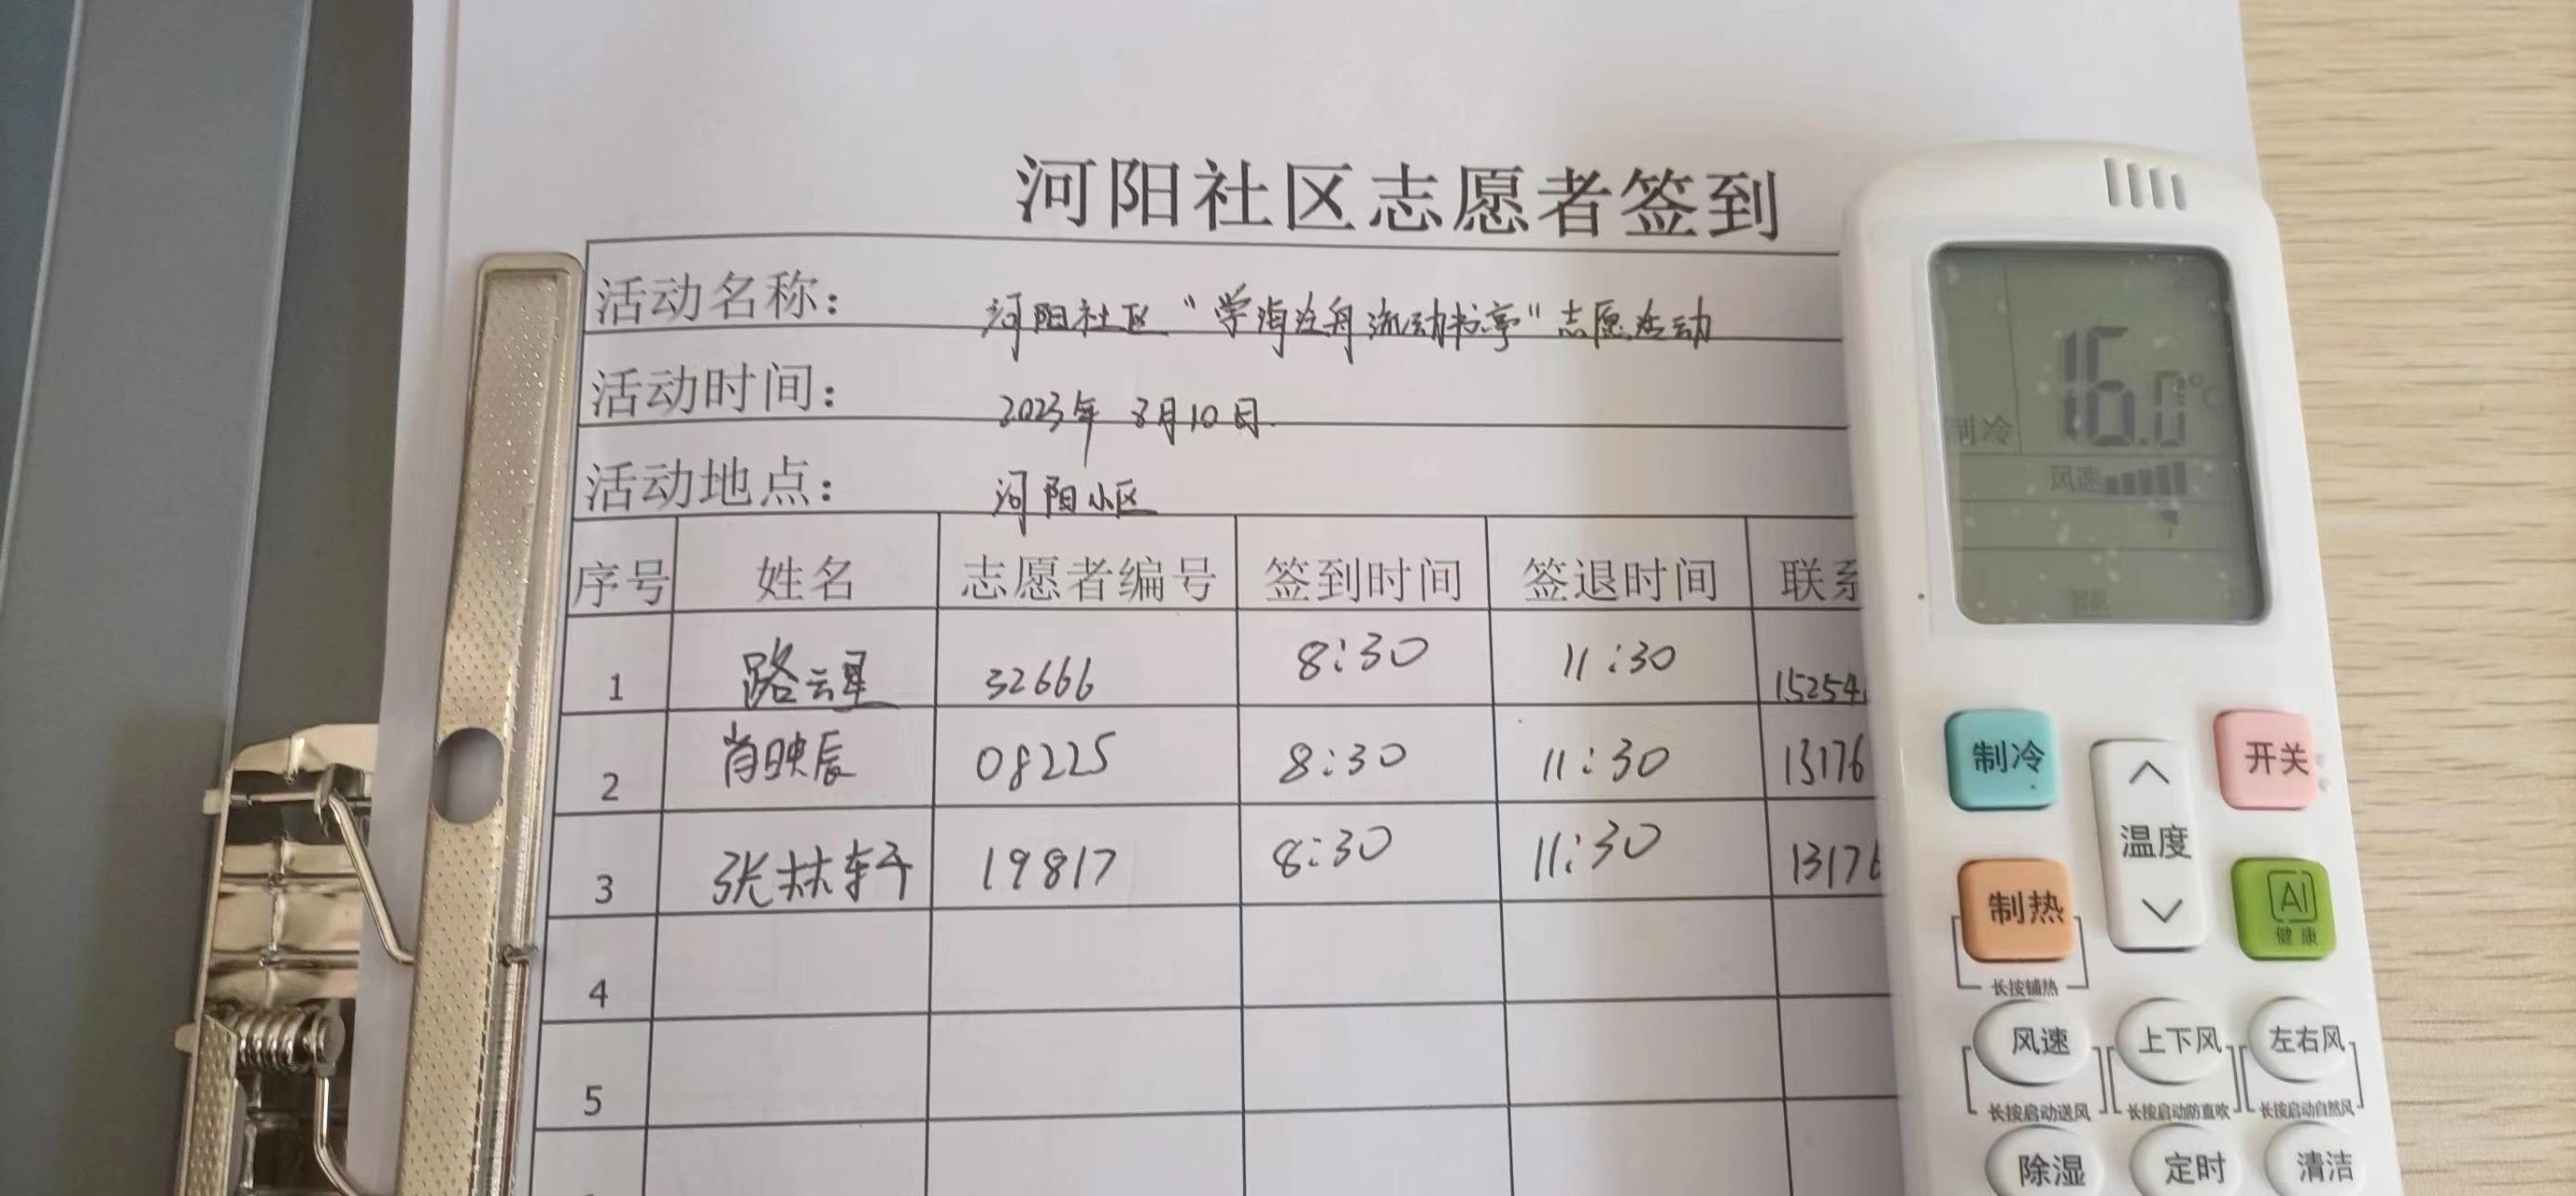 河阳社区志愿者签到
活动名称： 河阳社区“学海泛舟流动书亭”志愿活动
活动时间： 2023年 8月10日
活动地点： 河阳小区
序号 姓名 志愿者编号 签到时间 签退时间 联系
1 路云星 32666 8:30 11:30 15254
2 肖映辰 08225 8:30 11:30 13176
3 张林轩 19817 8:30 11:30 13176
4
5
16.0℃
制冷
风速
制冷 开关
温度
制热 AI
健康
长按辅热
风速 上下风 左右风
长按启动送风 长按启动防直吹 长按启动自然风
除湿 定时 清洁